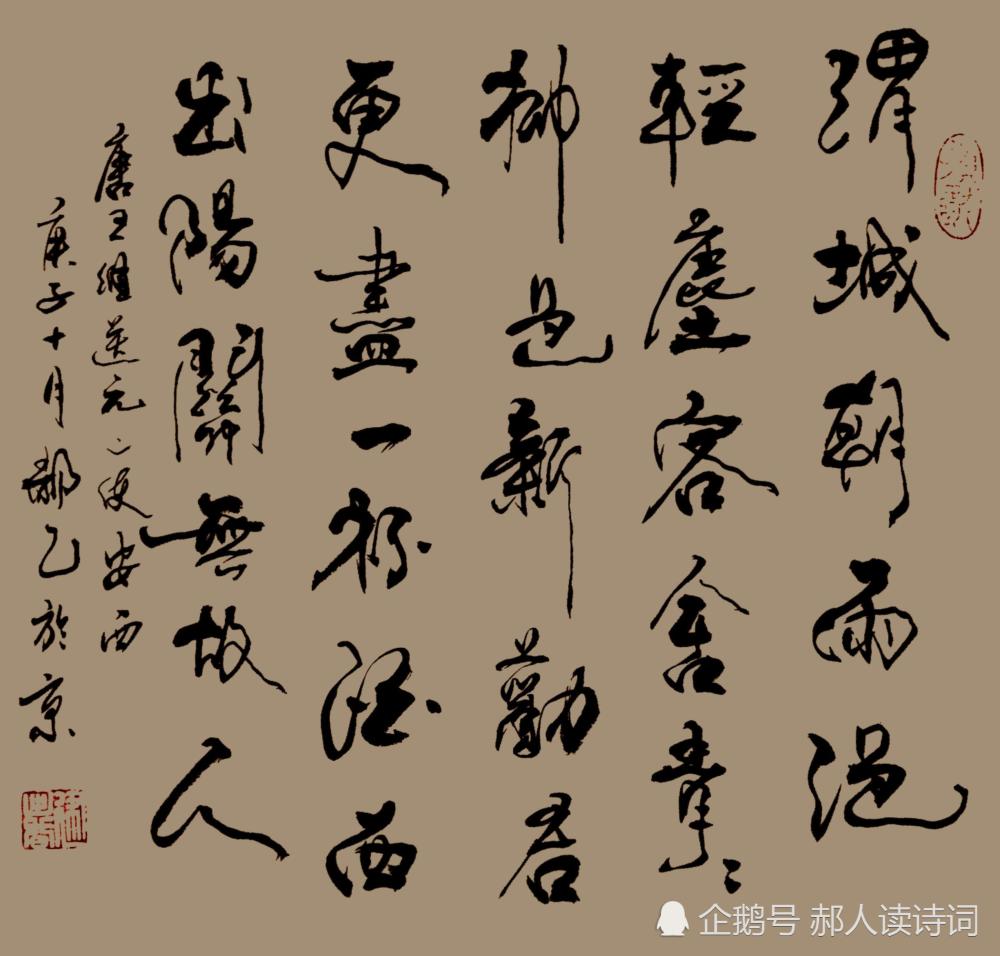 渭城朝雨浥
輕塵客舍青々
柳色新勸君
更盡一杯酒西
出陽關無故人
唐王維送元二使安西
庚子十月郝乙於京
企鹅号 郝人读诗词